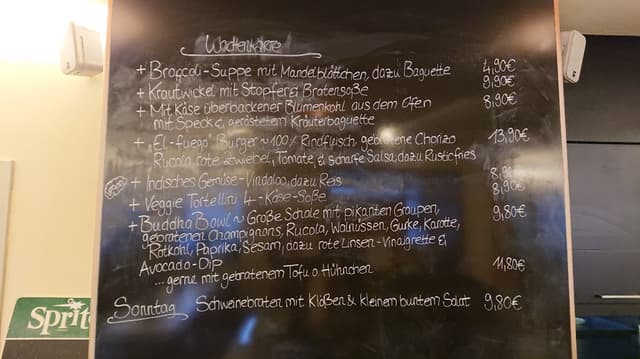 Wochenkarte
+ Broccoli-Suppe mit Mandelblättchen, dazu Baguette 4,90€
+ Krautwickel mit Stopfer & Bratensoße 9,90€
+ Mit Käse überbackener Blumenkohl aus dem Ofen 8,90€
mit Speck &, geröstetem Kräuterbaguette
+ „El-fuego" Burger ~ 100% Rindfleisch, gebratene Chorizo 13,90€
Rucola, rote Zwiebel, Tomate, & scharfe Salsa, dazu Rusticfries
+ Indisches Gemüse-Vindaloo, dazu Reis 8,90€
+ Veggie Tortellini 4-Käse-Soße 8,90€
+ Buddha Bowl ~ Große Schale mit pikanten Graupen, 9,80€
gebratenen Champignons, Rucola, Walnüssen, Gurke, Karotte,
Rotkohl, Paprika, Sesam, dazu rote Linsen-Vinaigrette &
Avocado-Dip
... gerne mit gebratenem Tofu o. Hühnchen 11,80€
Sonntag Schweinebraten mit Klößen & kleinem buntem Salat 9,80€
Sprit